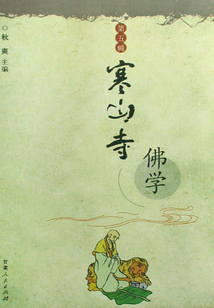 第五辑
寒山寺
佛学
◎秋爽 主编
甘肃人民出版社